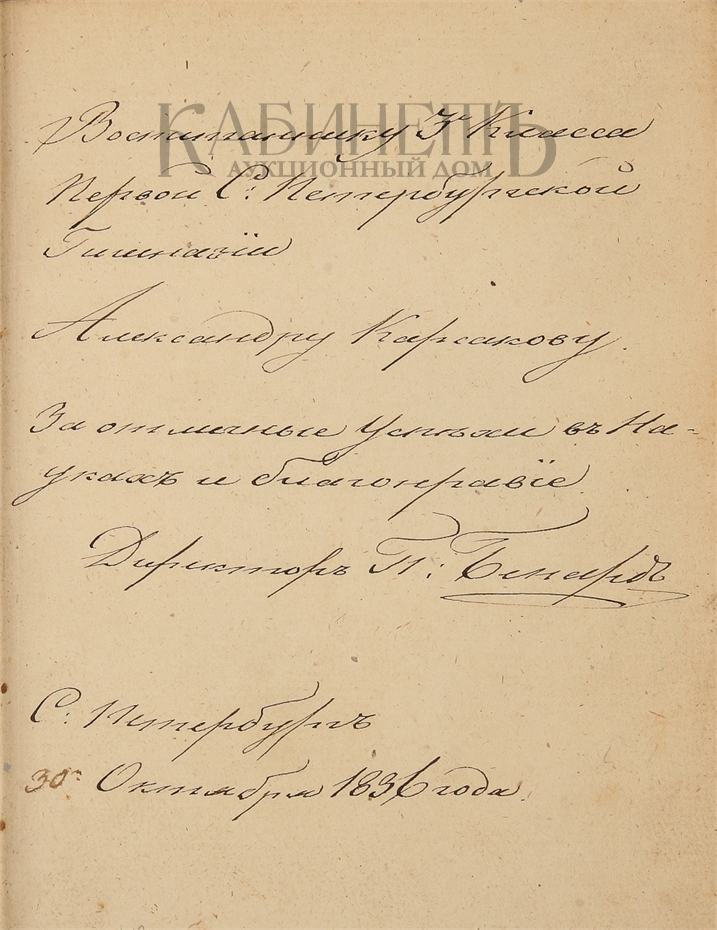 КАБИНЕТЪ
АУКЦИОННЫЙ ДОМ
Воспитаннику 3го Класса
Первой С: Петербургской
Гимназiи
Александру Карсакову.
За отличные Успѣхи въ На-
укахъ и благонравiе.
Директоръ П: Бенардъ
С: Петербургъ
30го Октября 1836 года.